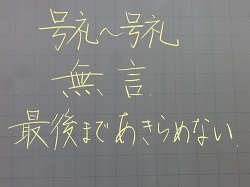 号礼〜号礼
無言
最後まであきらめない